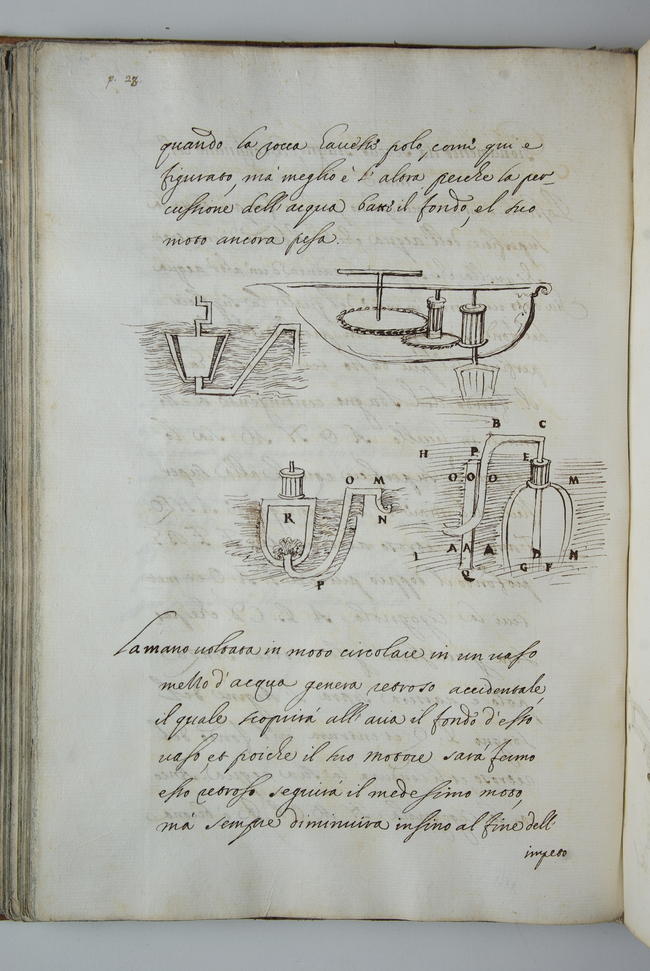 p. 28.
quando la zocca havesse polo, come qui e
figurato, mà meglio è l'altra perche la per-
cussione dell'acqua batte il fondo, el suo
moto ancora pesa.
B C
H P E
O O O M
O M
N
R
P
I A A A D N
G F
Q
La mano voltata in moto circolare in un vaso
mezzo d'acqua genera retroso accidentale,
il quale scoprirà all'aria il fondo d'esso
vaso, et poiche il suo motore sarà fermo
esso retroso seguirà il medessimo moto,
mà sempre diminuira insino al fine dell'
impeto